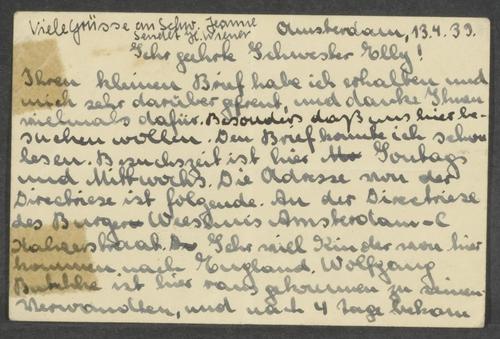 Viele Grüsse an Schw. Jeanne
sendet H. Wiener
Amsterdam, 13.4.39.
Sehr geehrte Schwester Elly!
Ihren kleinen Brief habe ich erhalten und
mich sehr darüber gfreut, und danke Ihnen
vielmals dafür. Besonders daß uns hier be-
suchen wollen. Den Brief konnte ich schon
lesen. Besuchszeit ist hier Sontags
und Mittwochs. Die Adresse von der
Directriese ist folgende. An der Directriese
des Burger Weeshuis Amsterdam-C
Sehr viel Kinder von hier
kommen nach England. Wolfgang
ist hier raus gekommen zu seinen
Verwandten, und nach 4 Tage bekam